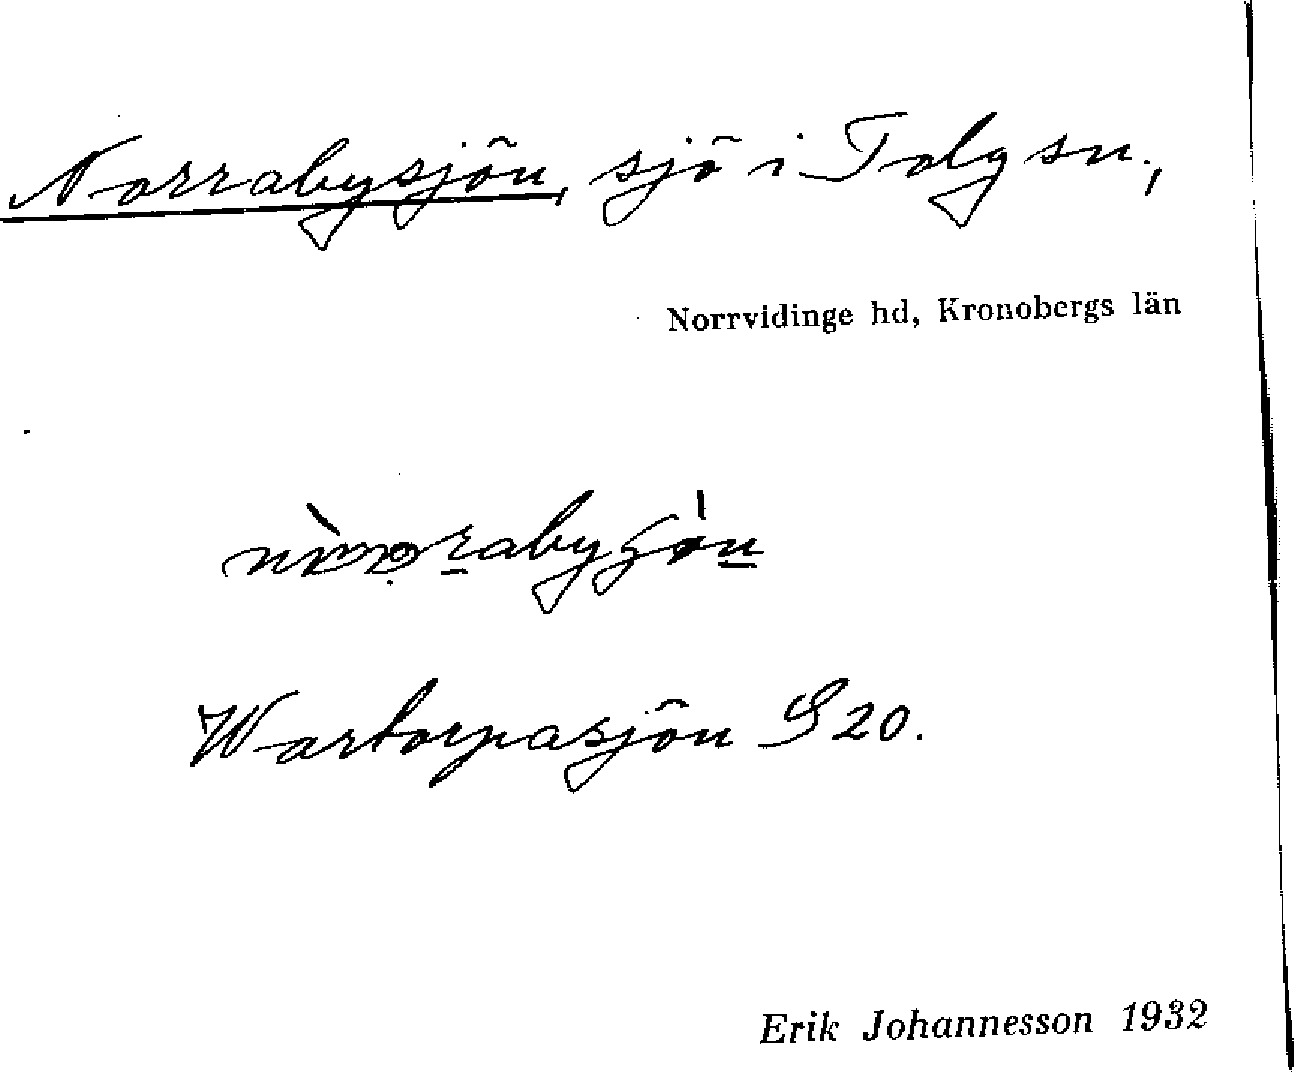 Norrabysjön, sjö i Tolg sn.,
Norrvidinge hd, Kronobergs län
Wartorpasjön S 20.
Erik Johannesson 1932